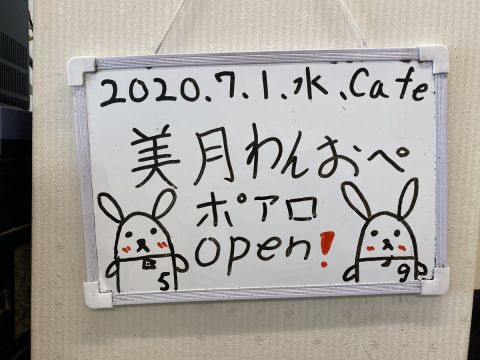 2020.7.1.水.Cafe
美月わんおぺ
ポアロ
open!
5
9